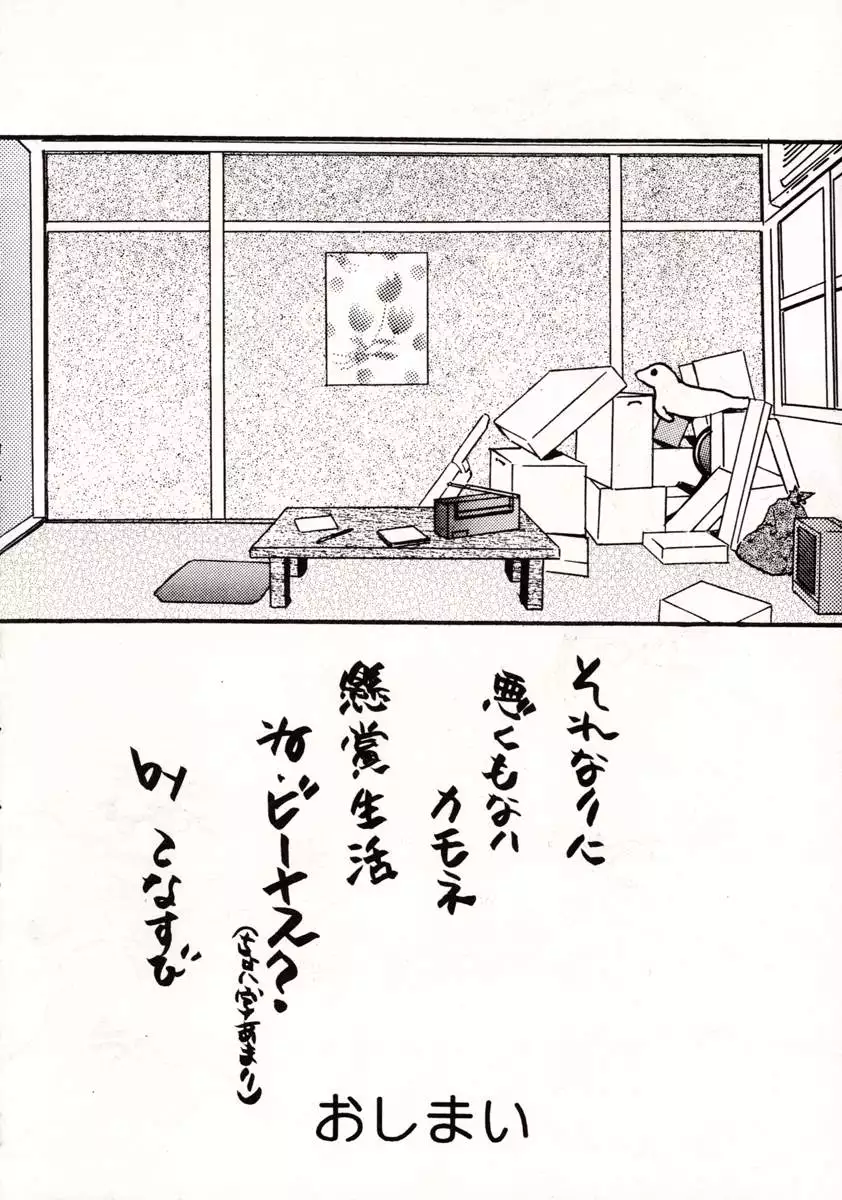 それなりに
悪くもない
カモネ
懸賞生活
ね. ビーナス?
(ちょい字あまり)
by こなすび
おしまい